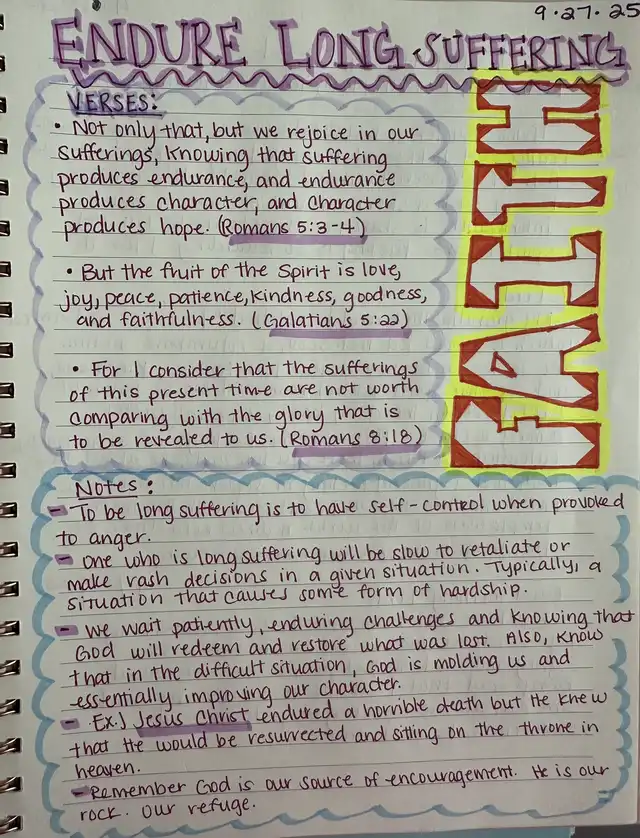 9.27.25
ENDURE LONG SUFFERING
VERSES:
• Not only that, but we rejoice in our
sufferings, knowing that suffering
produces endurance, and endurance
produces character, and character
produces hope. (Romans 5:3-4)
• But the fruit of the Spirit is love,
joy, peace, patience, kindness, goodness,
and faithfulness. (Galatians 5:22)
• For I consider that the sufferings
of this present time are not worth
comparing with the glory that is
to be revealed to us. (Romans 8:18)
FAITH
Notes:
- To be long suffering is to have self-control when provoked
to anger.
- One who is long suffering will be slow to retaliate or
make rash decisions in a given situation. Typically, a
situation that causes some form of hardship.
- We wait patiently, enduring challenges and knowing that
God will redeem and restore what was lost. Also, know
that in the difficult situation, God is molding us and
essentially improving our character.
- Ex.) Jesus Christ endured a horrible death but He knew
that He would be resurrected and sitting on the throne in
heaven.
- Remember God is our source of encouragement. He is our
rock. Our refuge.